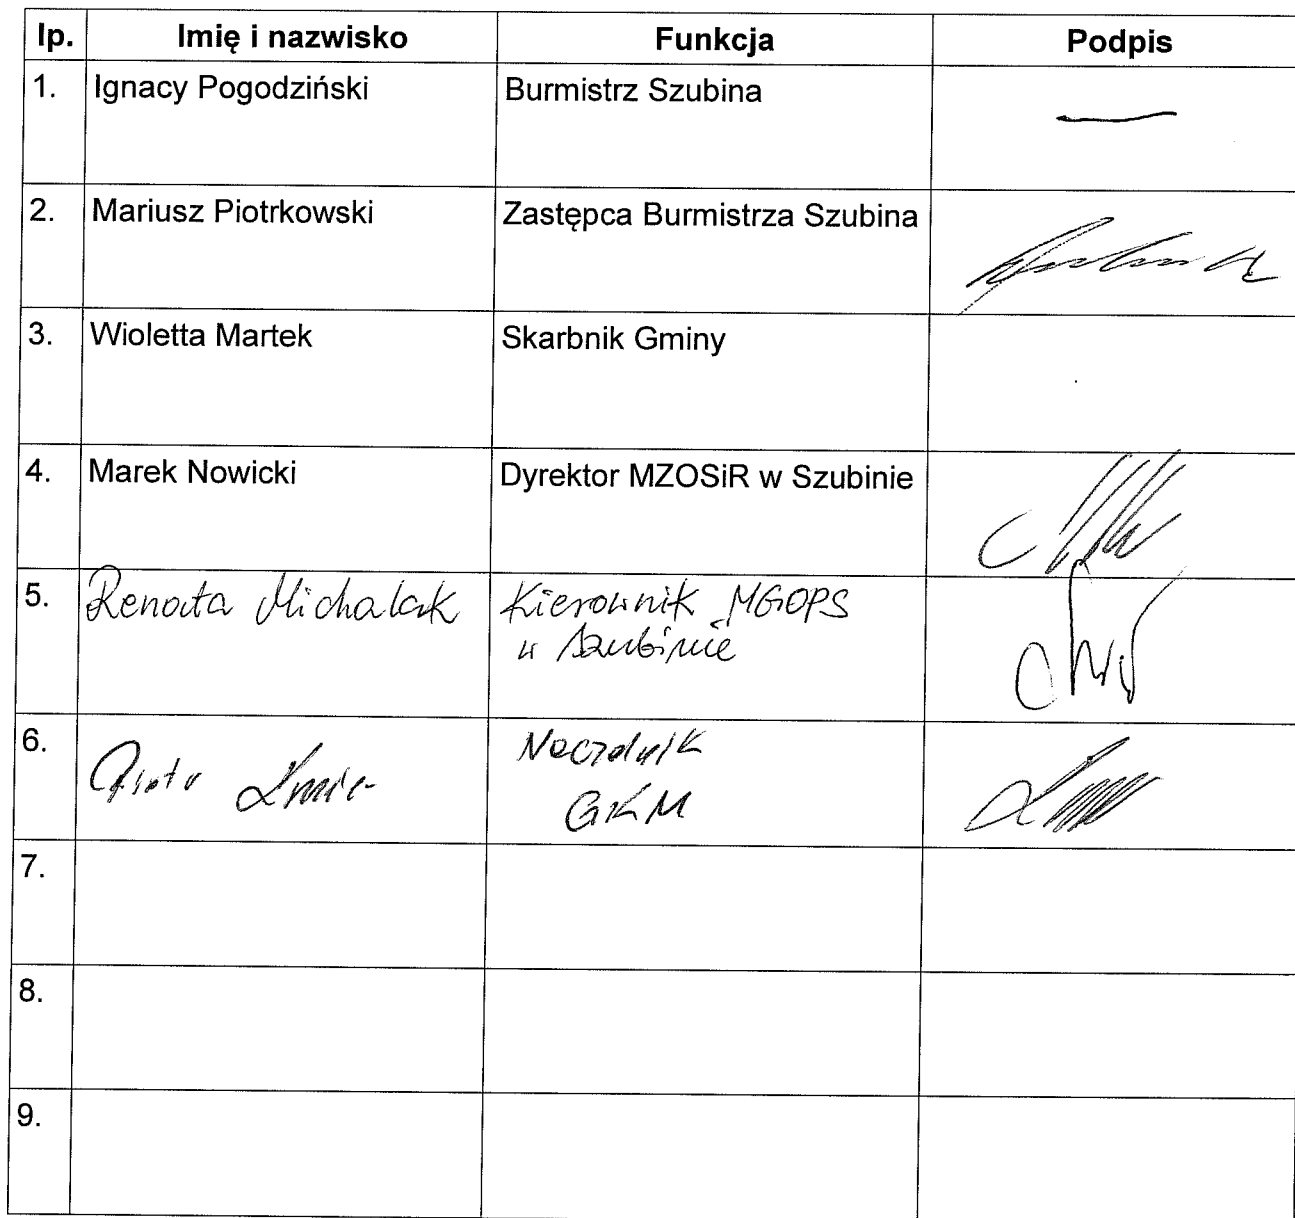 lp. Imię i nazwisko Funkcja Podpis
1. Ignacy Pogodziński Burmistrz Szubina
2. Mariusz Piotrkowski Zastępca Burmistrza Szubina
3. Wioletta Martek Skarbnik Gminy
4. Marek Nowicki Dyrektor MZOSiR w Szubinie
5. Renata Michalak Kierownik MGOPS
w Szubinie
6. Piotr Naczelnik
GKM
7.
8.
9.